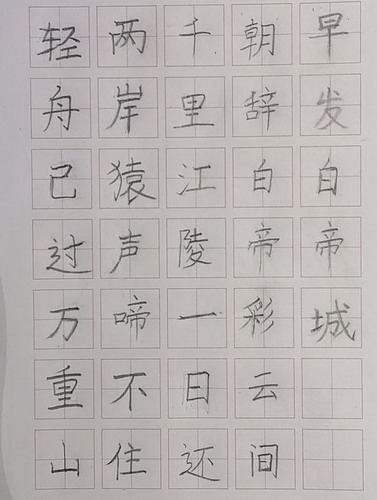 早发白帝城
朝辞白帝彩云间
千里江陵一日还
两岸猿声啼不住
轻舟已过万重山